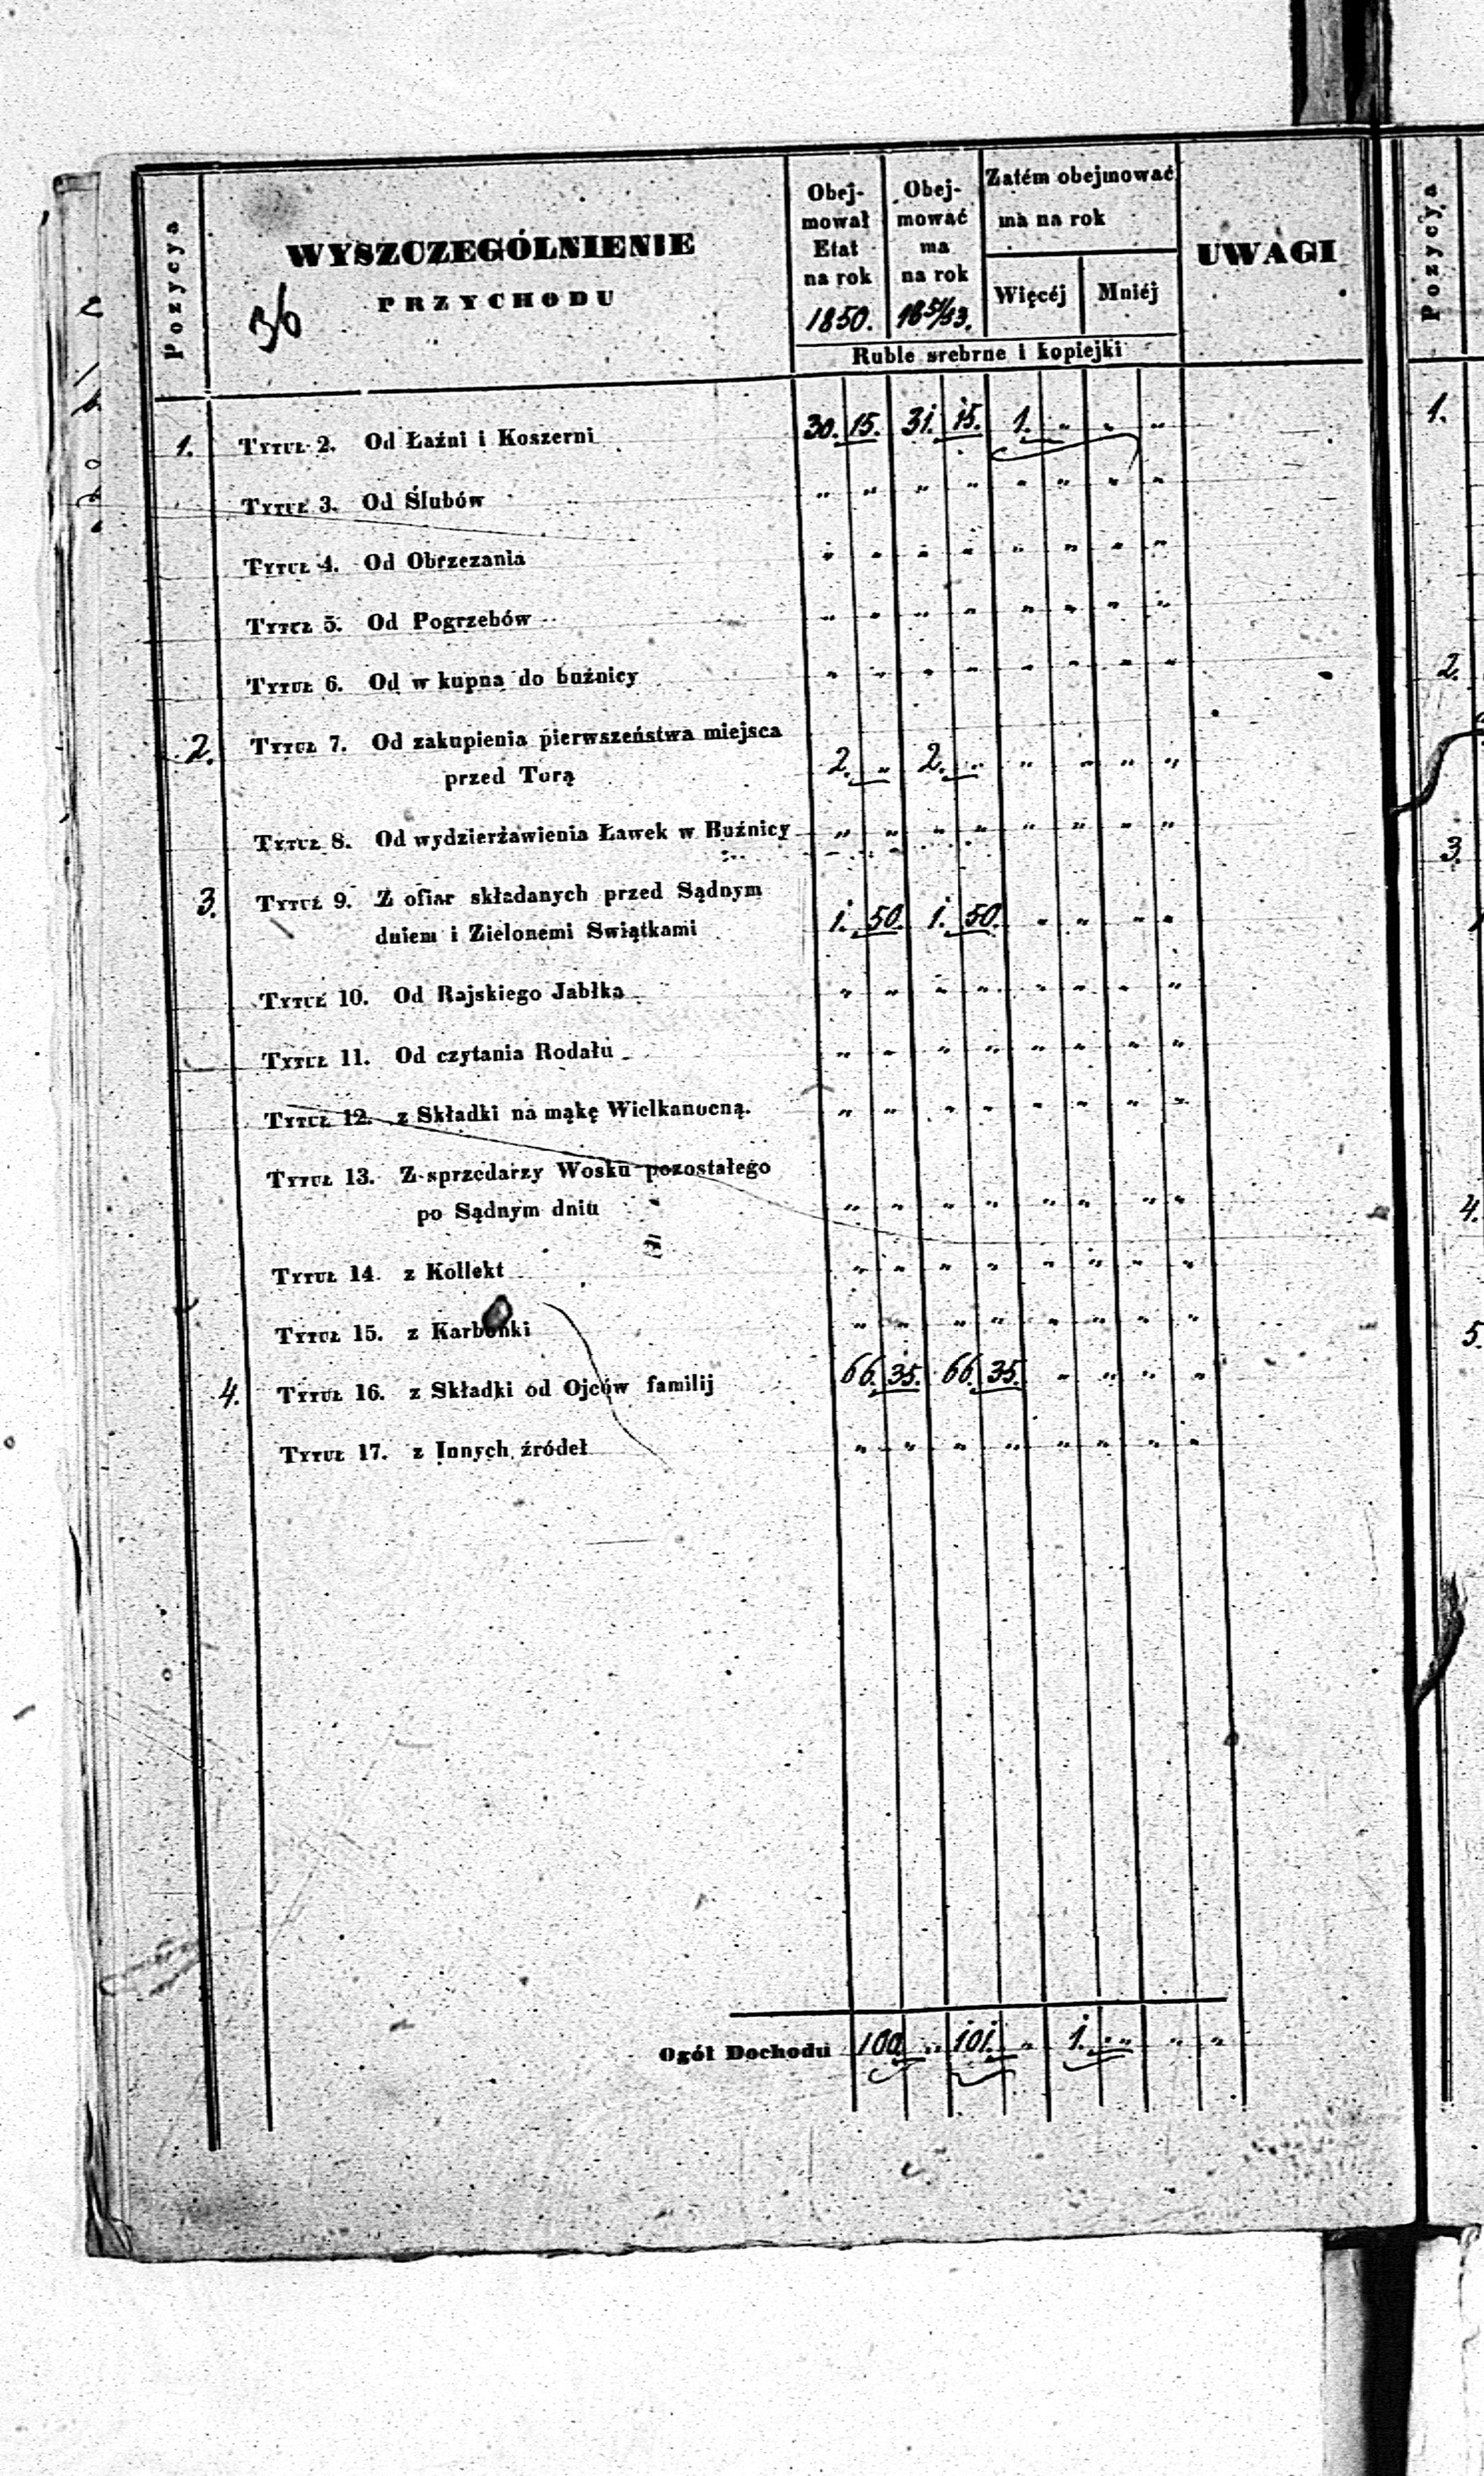 Pozycya
WYSZCZEGÓLNIENIE
PRZYCHODU
36
Obej-
mował
Etat
na rok
1850.
Obej-
mować
ma
na rok
1851/53.
Zatém obejmować
ma na rok
Więcéj
Mniéj
Ruble srebrne i kopiejki
UWAGI
1. Tytuł 2. Od Łaźni i Koszerni 30. 15. 31. 15. 1. „ „ „
Tytuł 3. Od Ślubów „ „ „ „ „ „ „ „
Tytuł 4. Od Obrzezania „ „ „ „ „ „ „ „
Tytuł 5. Od Pogrzebów „ „ „ „ „ „ „ „
Tytuł 6. Od w kupna do buźnicy „ „ „ „ „ „ „ „
2. Tytuł 7. Od zakupienia pierwszeństwa miejsca
przed Torą 2. „ 2. „ „ „ „ „
Tytuł 8. Od wydzierżawienia Ławek w Buźnicy „ „ „ „ „ „ „ „
3. Tytuł 9. Z ofiar składanych przed Sądnym
dniem i Zielonemi Swiątkami 1. 50. 1. 50. „ „ „ „
Tytuł 10. Od Rajskiego Jabłka „ „ „ „ „ „ „ „
Tytuł 11. Od czytania Rodału „ „ „ „ „ „ „ „
Tytuł 12. z Składki na mąkę Wielkanocną. „ „ „ „ „ „ „ „
Tytuł 13. Z sprzedarzy Wosku pozostałego
po Sądnym dniu „ „ „ „ „ „ „ „
Tytuł 14. z Kollekt „ „ „ „ „ „ „ „
Tytuł 15. z Karbonki „ „ „ „ „ „ „ „
4. Tytuł 16. z Składki od Ojców familij 66. 35. 66. 35. „ „ „ „
Tytuł 17. z Innych źródeł „ „ „ „ „ „ „ „
Ogół Dochodu 100 „ 101. „ 1. „ „ „
Pozycya
1.
2.
3.
4.
5.